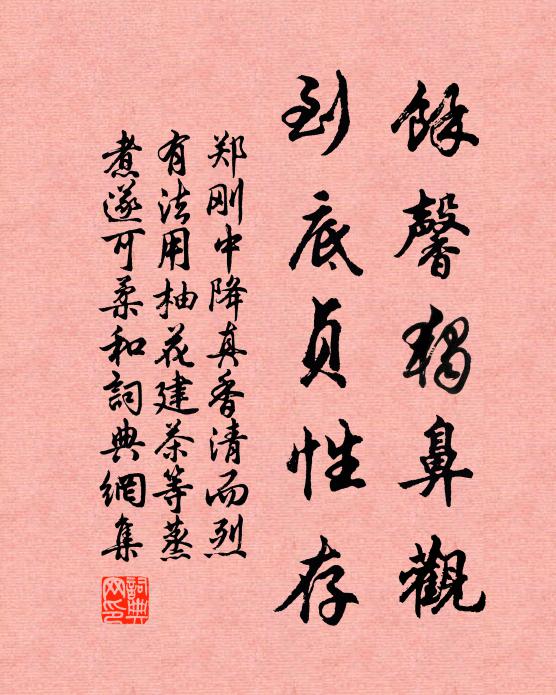 餘馨獨鼻觀
到底貞性存
郑刚中降真香清而烈
有法用柚花建茶等蒸
煮遂可柔和詞典網集
詞典
网印